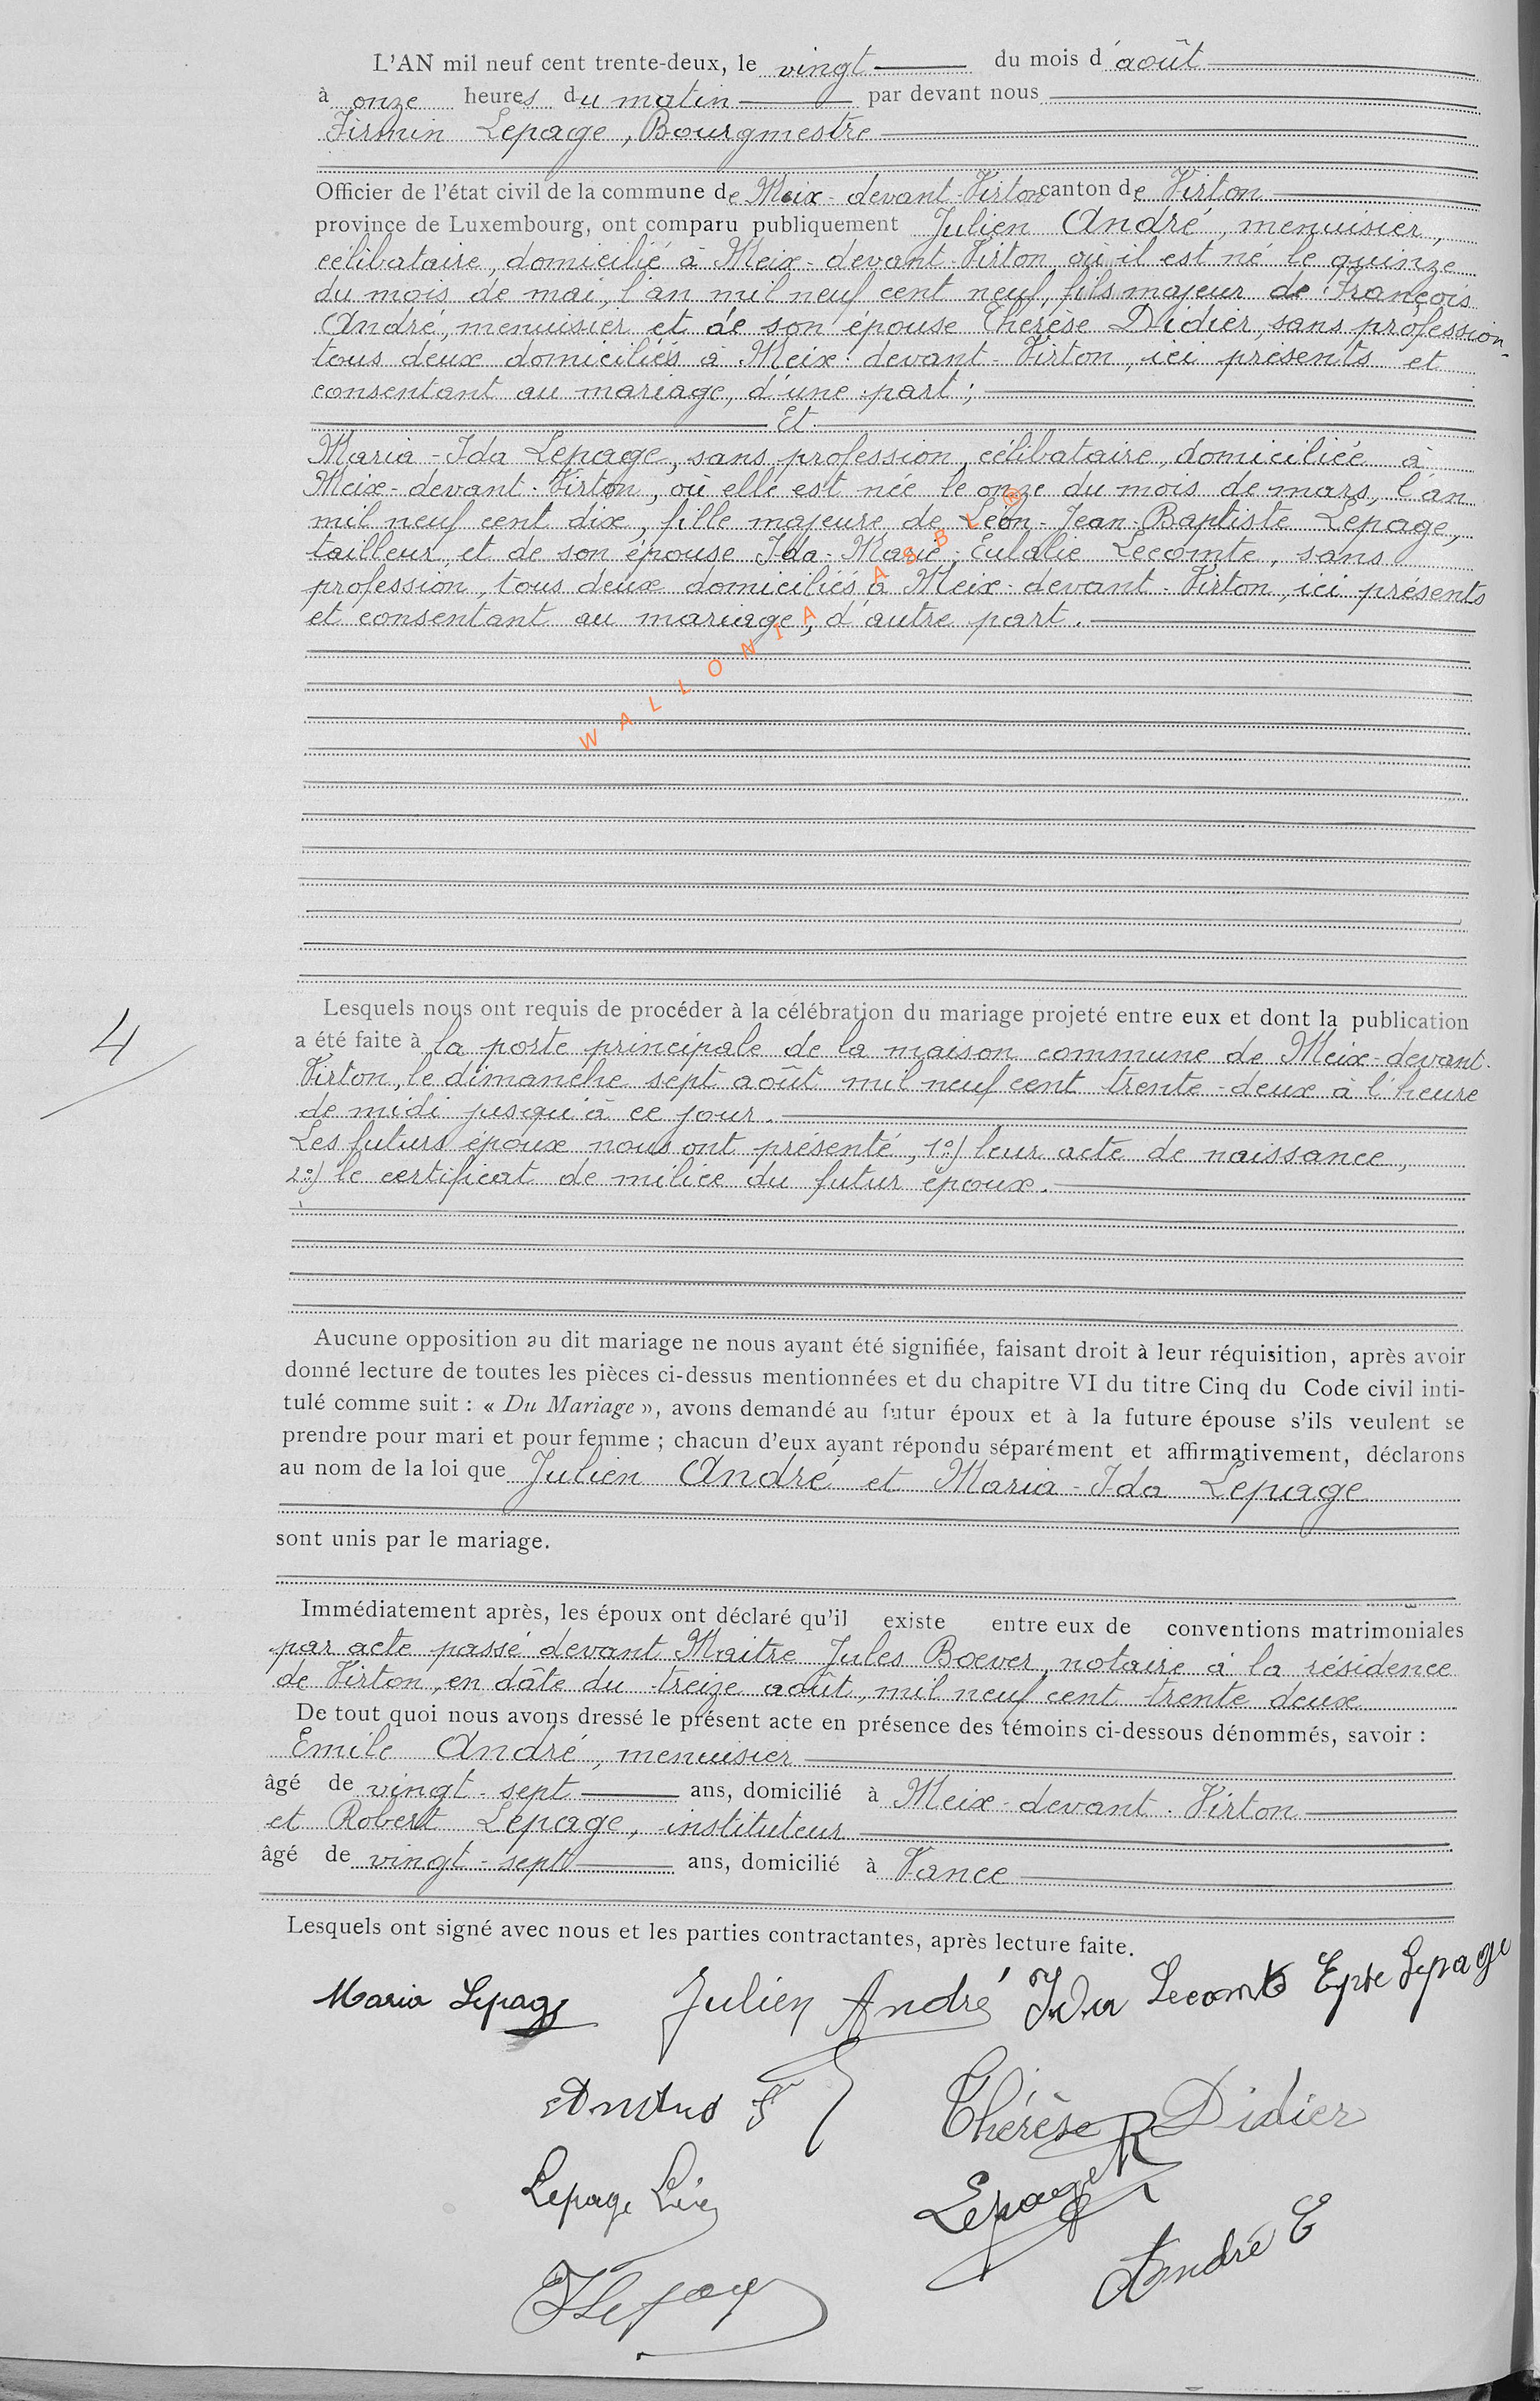 L'AN mil neuf cent trente-deux, le vingt du mois d'août
à onze heures du matin par devant nous
Firmin Lepage, Bourgmestre
Officier de l'état civil de la commune de Meix-devant-Virton canton de Virton
province de Luxembourg, ont comparu publiquement Julien André, menuisier,
célibataire, domicilié à Meix-devant-Virton où il est né le quinze
du mois de mai, l'an mil neuf cent neuf, fils majeur de François
André, menuisier et de son épouse Thérèse Didier, sans profession
tous deux domiciliés à Meix-devant-Virton, ici présents et
consentant au mariage, d'une part;
Et
Maria-Ida Lepage, sans profession, célibataire, domiciliée à
Meix-devant-Virton, où elle est née le onze du mois de mars, l'an
mil neuf cent dix, fille majeure de Léon-Jean-Baptiste Lepage,
tailleur, et de son épouse Ida-Marie-Eulalie Lecomte, sans
profession, tous deux domiciliés à Meix-devant-Virton, ici présents
et consentant au mariage, d'autre part.
WALLONIA ASBL ®
Lesquels nous ont requis de procéder à la célébration du mariage projeté entre eux et dont la publication
4
a été faite à la porte principale de la maison commune de Meix-devant-
Virton, le dimanche sept août mil neuf cent trente-deux à l'heure
de midi jusqu'à ce jour.
Les futurs époux nous ont présenté, 1°) leur acte de naissance,
2°) le certificat de milice du futur époux.
Aucune opposition au dit mariage ne nous ayant été signifiée, faisant droit à leur réquisition, après avoir
donné lecture de toutes les pièces ci-dessus mentionnées et du chapitre VI du titre Cinq du Code civil inti-
tulé comme suit : « Du Mariage », avons demandé au futur époux et à la future épouse s'ils veulent se
prendre pour mari et pour femme ; chacun d'eux ayant répondu séparément et affirmativement, déclarons
au nom de la loi que Julien André et Maria-Ida Lepage
sont unis par le mariage.
Immédiatement après, les époux ont déclaré qu'il existe entre eux de conventions matrimoniales
par acte passé devant Maitre Jules Boever, notaire à la résidence
de Virton, en dâte du treize août, mil neuf cent trente deux
De tout quoi nous avons dressé le présent acte en présence des témoins ci-dessous dénommés, savoir :
Emile André, menuisier
âgé de vingt-sept ans, domicilié à Meix-devant-Virton
et Robert Lepage, instituteur
âgé de vingt-sept ans, domicilié à Vance
Lesquels ont signé avec nous et les parties contractantes, après lecture faite.
Maria Lepage Julien André Ida Lecomte Epse Lepage
André F Thérèse Didier
Lepage Léon Lepage R
André E
F Lepage